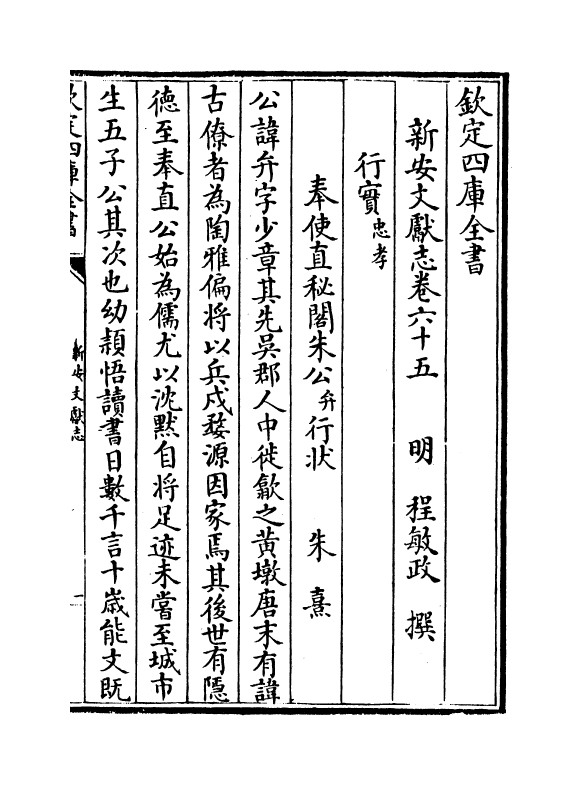 欽定四庫全書
新安文獻志卷六十五　明　程敏政　撰
行實忠孝
奉使直秘閣朱公弁行狀　朱熹
公諱弁字少章其先吳郡人中徙歙之黃墩唐末有諱
古僚者為陶雅偏將以兵戍婺源因家焉其後世有隱
德至奉直公始為儒尤以沈黙自將足迹未嘗至城市
生五子公其次也幼穎悟讀書日數千言十歲能文既
欽定四庫全書
新安文獻志
一